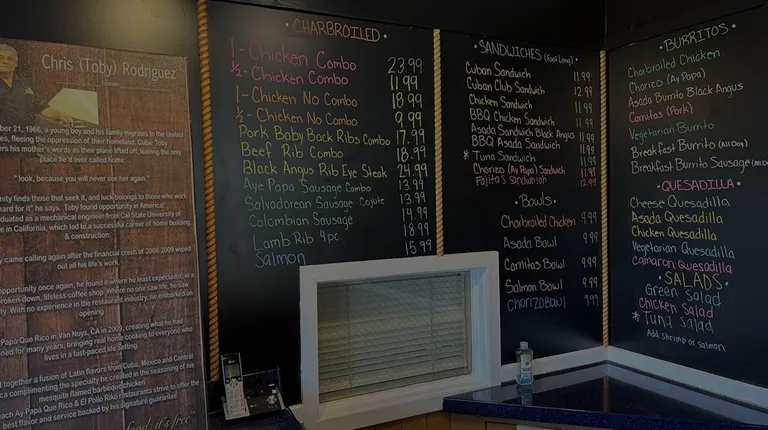 Chris (Toby) Rodriguez
Founder
ber 21, 1966, a young boy and his family migrates to the United
es, fleeing the oppression of their homeland, Cuba. Toby
ers his mother's words as their plane lifted off, leaving the only
place he'd ever called home.
" look, because you will never see her again."
unity finds those that seek it, and luck belongs to those who work
hard for it" he says. Toby found opportunity in America!
duated as a mechanical engineer from Cal State University of
e in California, which led to a successful career of home building
& construction;
y came calling again after the financial crash of 2008-2009 wiped
out all his life's work.
opportunity once again, he found it where he least expected it; in a
oken-down, lifeless coffee shop. Where no one saw life, he saw
ty. With no experience in the restaurant industry, he embarked on
opening
Papa Que Rico in Van Nuys, CA in 2009, creating what he had
ned for many years; bringing real home cooking to everyone who
lives in a fast-paced life setting.
t together a fusion of Latin flavors from Cuba, Mexico and Central
ca complimenting the specialty he created in the seasoning of his
mesquite flamed barbeque chicken.
each Ay Papa Que Rico & El Pollo Rico restaurants strive to offer the
best flavor and service backed by his signature guarantee.
food, it's free"
• CHARBROILED •
1 - Chicken Combo 23.99
½ - Chicken Combo 11.99
1 - Chicken No Combo 18.99
½ - Chicken No Combo 9.99
Pork Baby Back Ribs Combo 17.99
Beef Rib Combo 18.99
Black Angus Rib Eye Steak 24.99
Aye Papa Sausage Combo 13.99
Salvadorean Sausage 13.99
Colombian Sausage 14.99
Lamb Rib 4pc. 18.99
Salmon 15.99
• SANDWICHES (Foot Long) •
Cuban Sandwich 11.99
Cuban Club Sandwich 12.99
Chicken Sandwich 11.99
BBQ Chicken Sandwich 11.99
Asada Sandwich Black Angus 11.99
BBQ Asada Sandwich 11.99
* Tuna Sandwich 11.99
Chorizo (Ay Papa) Sandwich 11.99
Fajitas Sandwich 12.99
• BOWLS •
Charbroiled Chicken 9.99
Asada Bowl 9.99
Carnitas Bowl 9.99
Salmon Bowl 9.99
Chorizo Bowl 9.99
• BURRITOS •
Charbroiled Chicken
Chorizo (Ay Papa)
Asada Burrito Black Angus
Carnitas (Pork)
Vegetarian Burrito
Breakfast Burrito (All Day)
Breakfast Burrito Sausage
• QUESADILLA •
Cheese Quesadilla
Asada Quesadilla
Chicken Quesadilla
Vegetarian Quesadilla
Camaron Quesadilla
• SALADS •
Green Salad
Chicken Salad
* Tuna Salad
Add shrimp or salmon